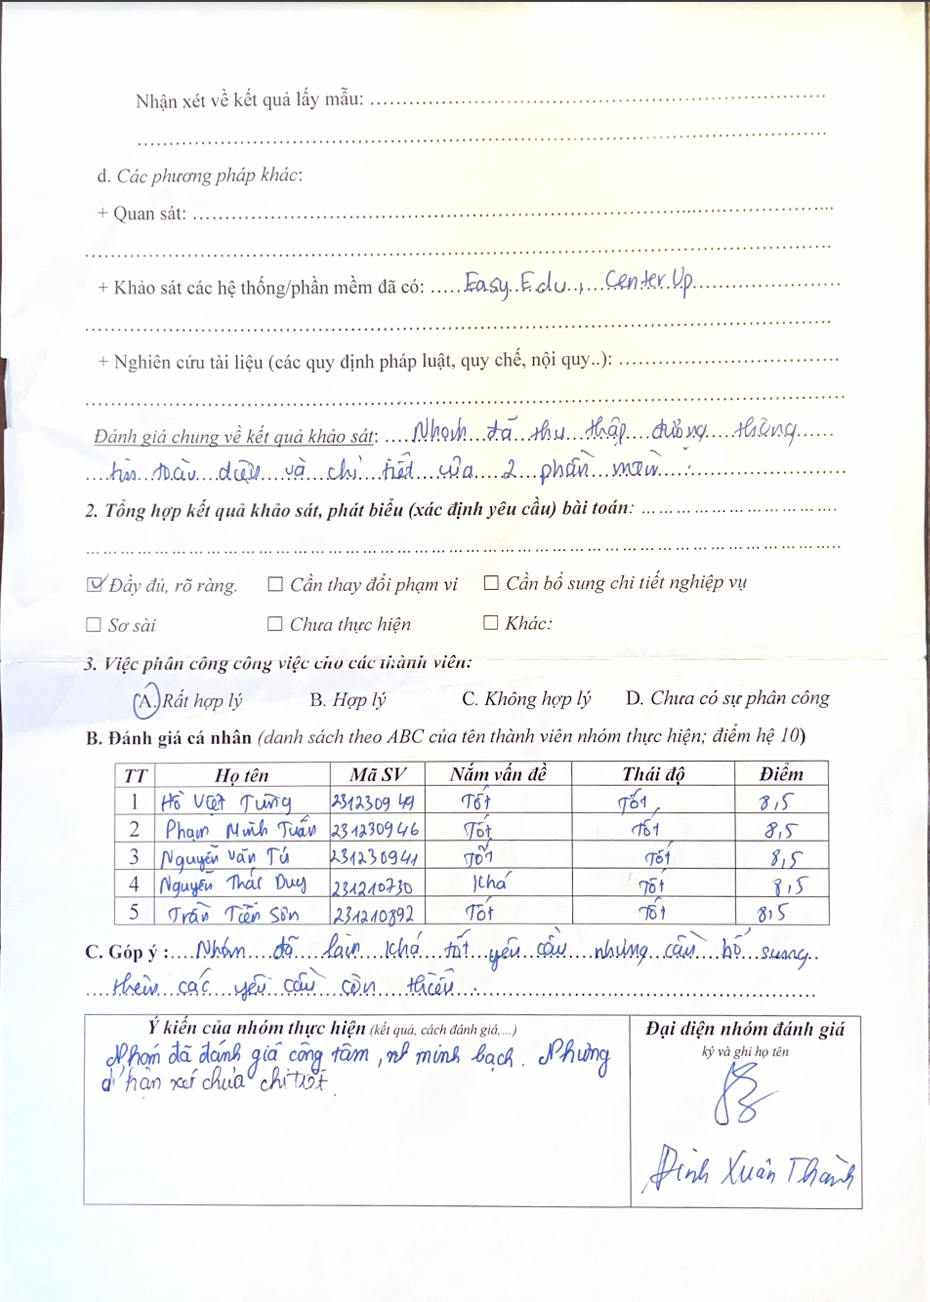 Nhận xét về kết quả lấy mẫu: ........................................
........................................
d. Các phương pháp khác:
+ Quan sát: ........................................
........................................
+ Khảo sát các hệ thống/phần mềm đã có: Easy Edu, Center Up
........................................
+ Nghiên cứu tài liệu (các quy định pháp luật, quy chế, nội quy..): ....................
........................................
Đánh giá chung về kết quả khảo sát: Nhóm đã thu thập đường thông
tin toàn diện và chi tiết của 2 phần mềm.
2. Tổng hợp kết quả khảo sát, phát biểu (xác định yêu cầu) bài toán: ....................
........................................
☑ Đầy đủ, rõ ràng. ☐ Cần thay đổi phạm vi ☐ Cần bổ sung chi tiết nghiệp vụ
☐ Sơ sài ☐ Chưa thực hiện ☐ Khác:
3. Việc phân công công việc cho các thành viên:
A. Rất hợp lý B. Hợp lý C. Không hợp lý D. Chưa có sự phân công
B. Đánh giá cá nhân (danh sách theo ABC của tên thành viên nhóm thực hiện; điểm hệ 10)
TT Họ tên Mã SV Nắm vấn đề Thái độ Điểm
1 Hồ Việt Tùng Tốt Tốt 8,5
2 Phạm Minh Tuấn 231230946 Tốt Tốt 8,5
3 Nguyễn Văn Tú 231230941 Tốt Tốt 8,5
4 Nguyễn Thái Duy 231210730 Khá Tốt 8,5
5 Trần Tiến Sơn 231210892 Tốt Tốt 8,5
C. Góp ý : Nhóm đã làm khá tốt yêu cầu nhưng cần bổ sung
thêm các yêu cầu còn thiếu.
Ý kiến của nhóm thực hiện (kết quả, cách đánh giá,...) Đại diện nhóm đánh giá
ký và ghi họ tên
Nhóm đã đánh giá công tâm, minh bạch. Nhưng
nhận xét chưa chi tiết.
Đinh Xuân Thành